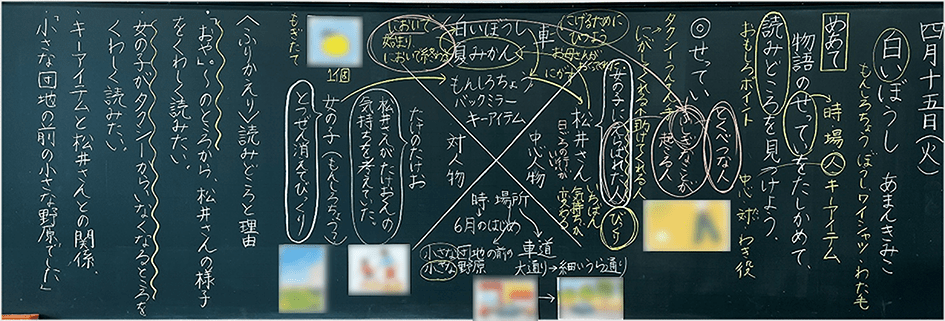 四月十五日(火)
白いぼうし あまんきみこ
もんしろちょう ぼうし ワイシャツ・わた毛
時 場 人 キーアイテム
めあて
物語のせっていをたしかめて、
読みどころを見つけよう。
おもしろポイント
中心 対 わき役
◎せってい
とくべつな人
ふしぎなことが
起こる人
にがしてくれる
助けてくれる
女の子にしんじられた人
びっくり
松井さん
いちばん
気持ちが
変わる
にげるために
ひつよう
車
白いぼうし
夏みかん
においで
始まり
においで終わる
もぎたて
1個
もんしろちょう
バックミラー
キーアイテム
中心人物
対人物
時・場所
6月のはじめ
小さな団地の前の
小さな野原
車道
大通り→細いうら通り
たけのたけお
松井さんがたけおくんの
気持ちを考えていた。
女の子(もんしろちょう)
とつぜん消えてびっくり
〈ふりかえり〉読みどころと理由
・「おや。」~のところから、松井さんの様子
をくわしく読みたい。
・女の子がタクシーから、いなくなるところを
くわしく読みたい。
・キーアイテムと松井さんとの関係
・「小さな団地の前の小さな野原でした」